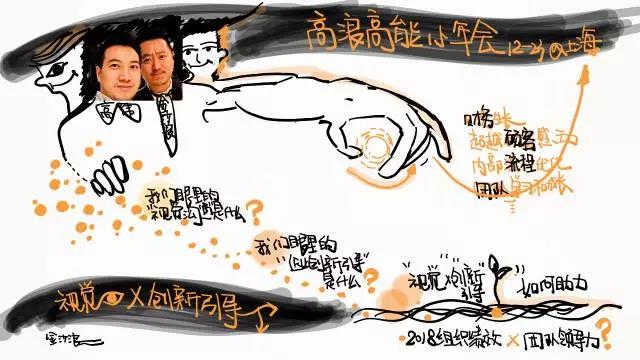 高浪高能小年会12-23@上海
高伟
财务生长
超越顾客感动
内部流程优化
团队学习和成长
我们眼里的
"视觉沟通"是什么?
我们眼里的
"创新引导"
是什么?
"视觉x创新"
引导
如何助力
视觉 X 创新引导
2018组织绩效 x 团队领导力?